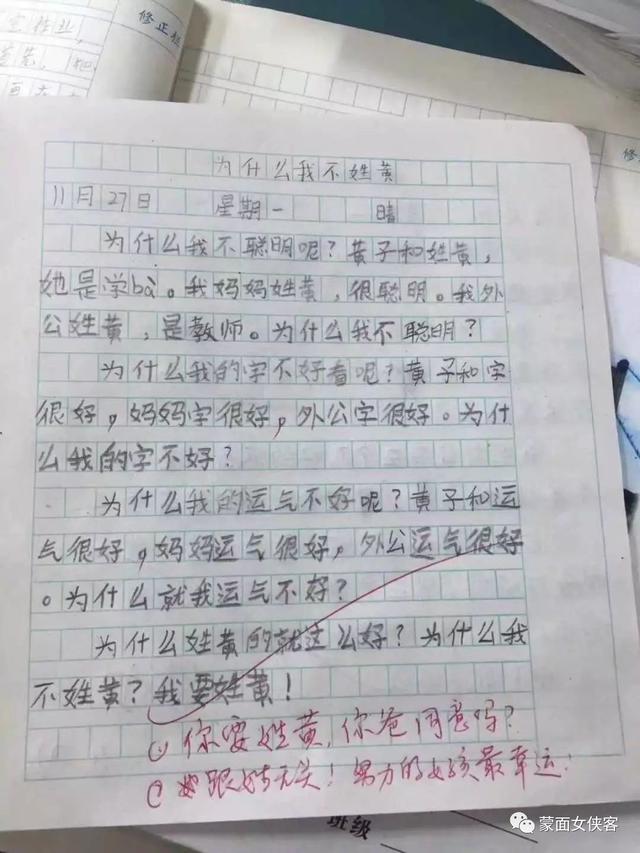 修正栏
为什么我不姓黄
11月27日 星期一 晴
为什么我不聪明呢?黄子和姓黄,
她是学bà。我妈妈姓黄,很聪明。我外
公姓黄,是教师。为什么我不聪明?
为什么我的字不好看呢?黄子和字
很好,妈妈字很好,外公字很好。为什
么我的字不好?
为什么我的运气不好呢?黄子和运
气很好,妈妈运气很好,外公运气很好
。为什么就我运气不好?
为什么姓黄的就这么好?为什么我
不姓黄?我要姓黄!
① 你要姓黄,你爸同意吗?
② 跟姓无关!努力的女孩最幸运!
班级
蒙面女侠客